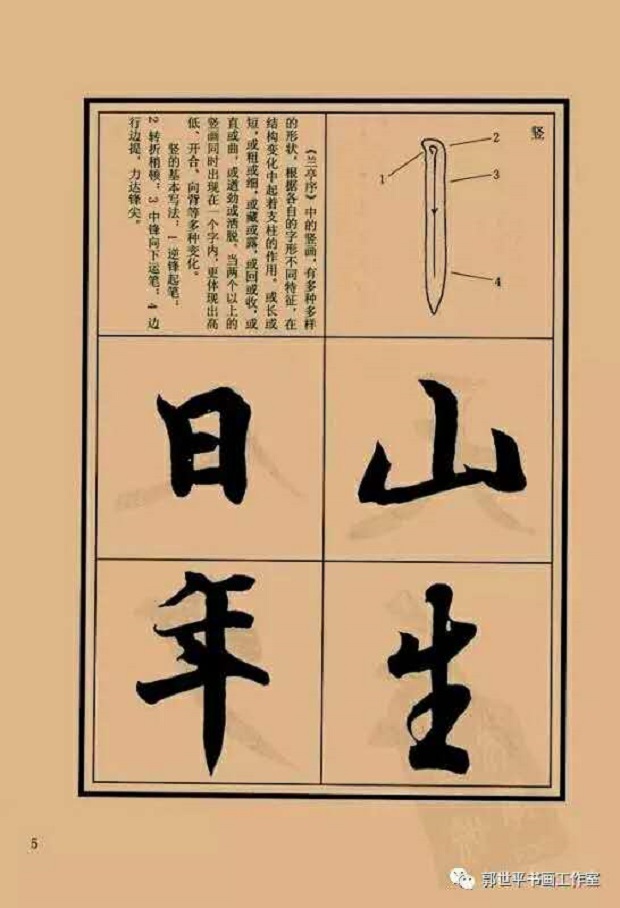 竖
2
1
3
4
《兰亭序》中的竖画，有多种多样
的形状，根据各自的字形不同特征，在
结构变化中起着支柱的作用。或长或
短，或粗或细，或藏或露，或回或收，或
直或曲，或遒劲或洒脱。当两个以上的
竖画同时出现在一个字内，更体现出高
低、开合、向背等多种变化。
竖的基本写法：1 逆锋起笔；
2 转折稍顿；3 中锋向下运笔；4 边
行边提，力达锋尖。
山
日
生
年
5
郭世平书画工作室